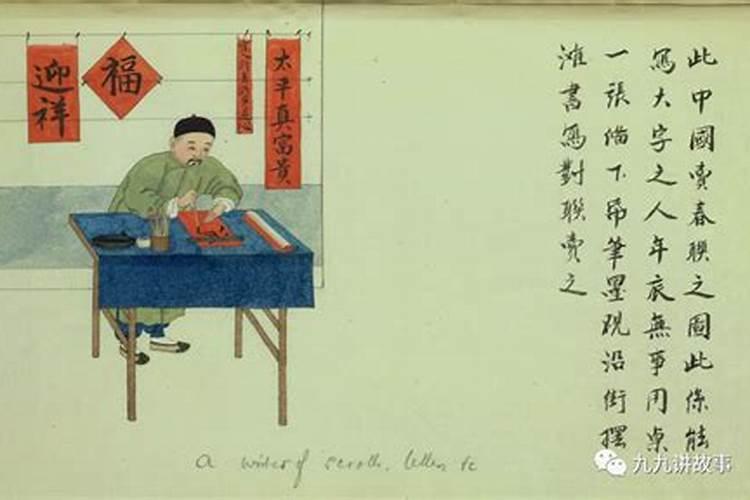 迎祥
福
太平真富貴
此中國賣春聯之圖此係能
寫大字之人年衣無事用桌
一張備下帋筆墨硯沿街擺
灘書寫對聯賣之
A writer of scrolls, letters &c
九九讲故事